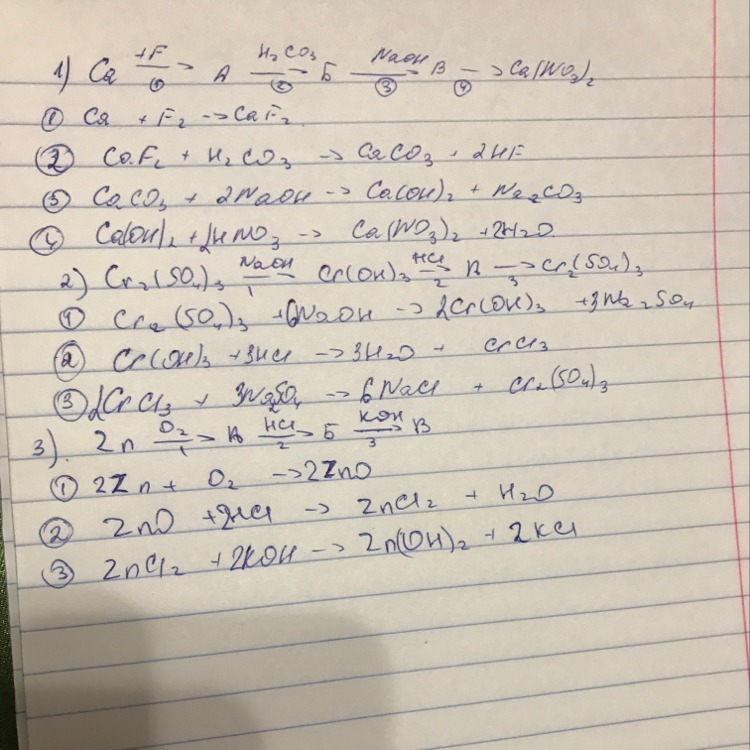 1) Ca +F → ① А H₂CO₃ → ② Б NaOH → ③ В → ④ Ca(NO₃)₂
① Ca + F₂ → CaF₂.
② CaF₂ + H₂CO₃ → CaCO₃ + 2HF
③ CaCO₃ + 2NaOH → Ca(OH)₂ + Na₂CO₃
④ Ca(OH)₂ + 2HNO₃ → Ca(NO₃)₂ + 2H₂O
2) Cr₂(SO₄)₃ NaOH — 1 Cr(OH)₃ HCl → 2 А → 3 Cr₂(SO₄)₃
① Cr₂(SO₄)₃ + 6NaOH → 2Cr(OH)₃ + 3Na₂SO₄
② Cr(OH)₃ + 3HCl → 3H₂O + CrCl₃
③ 2CrCl₃ + 3Na₂SO₄ → 6NaCl + Cr₂(SO₄)₃
3). Zn O₂ → 1 А HCl → 2 Б KOH → 3 В
① 2Zn + O₂ → 2ZnO
② ZnO + 2HCl → ZnCl₂ + H₂O
③ ZnCl₂ + 2KOH → Zn(OH)₂ + 2KCl